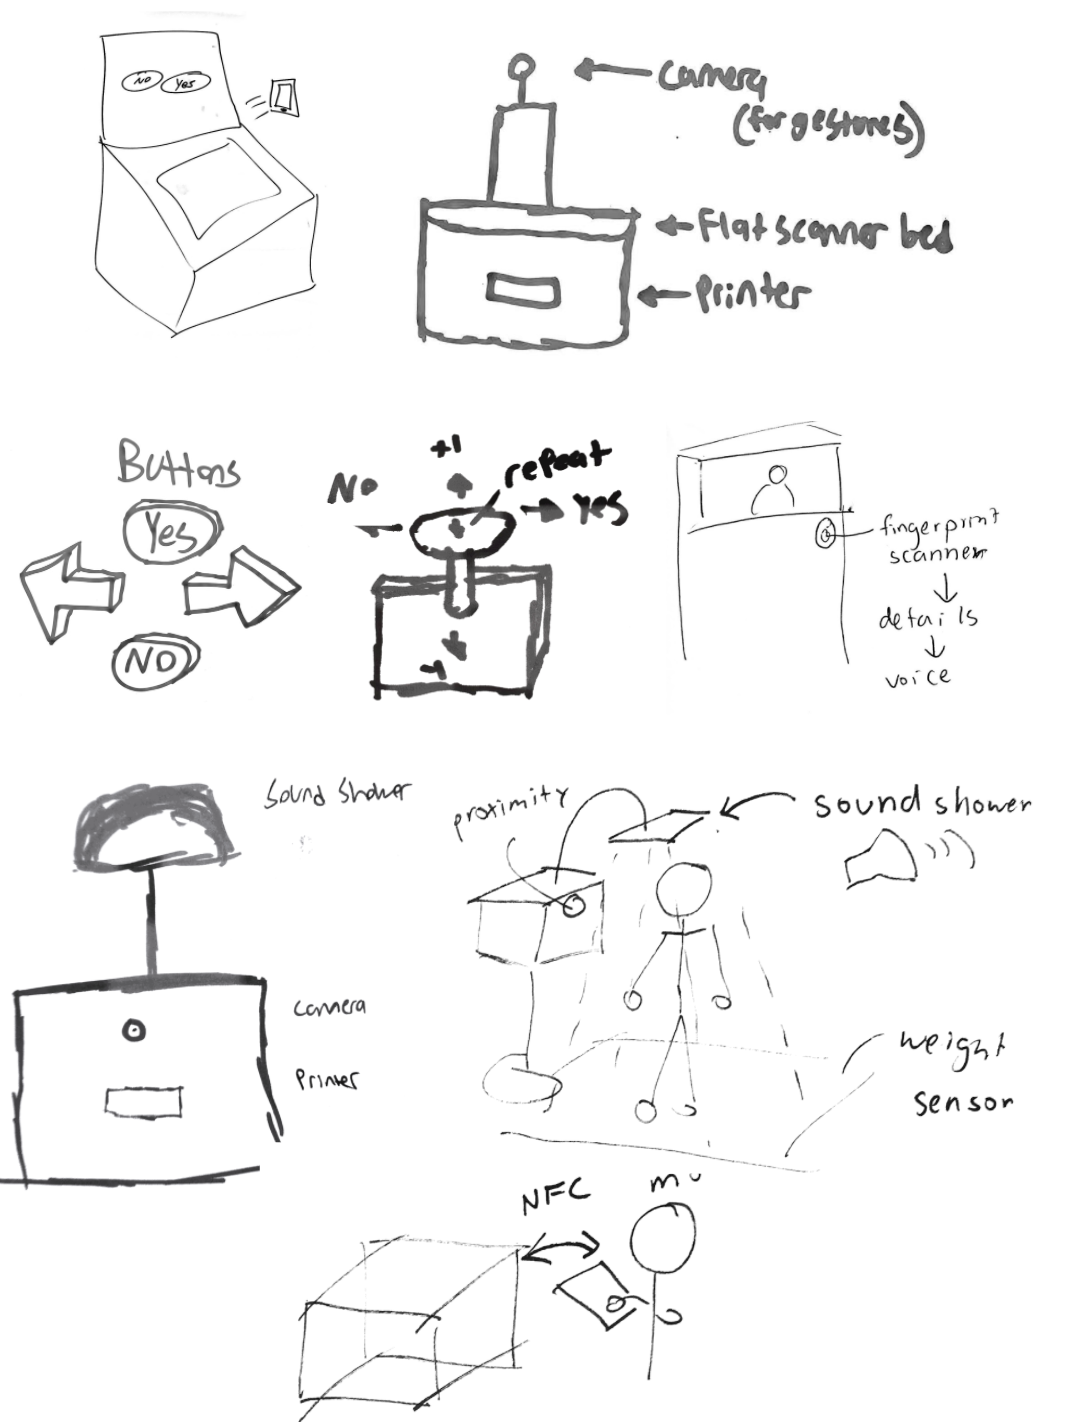 NO Yes
Camera
(for gestures)
Flat scanner bed
Printer
Buttons
Yes
NO
+1
repeat
NO
Yes
-1
fingerprint
scanner
details
voice
Sound Shower
Camera
Printer
proximity
sound shower
weight
sensor
NFC